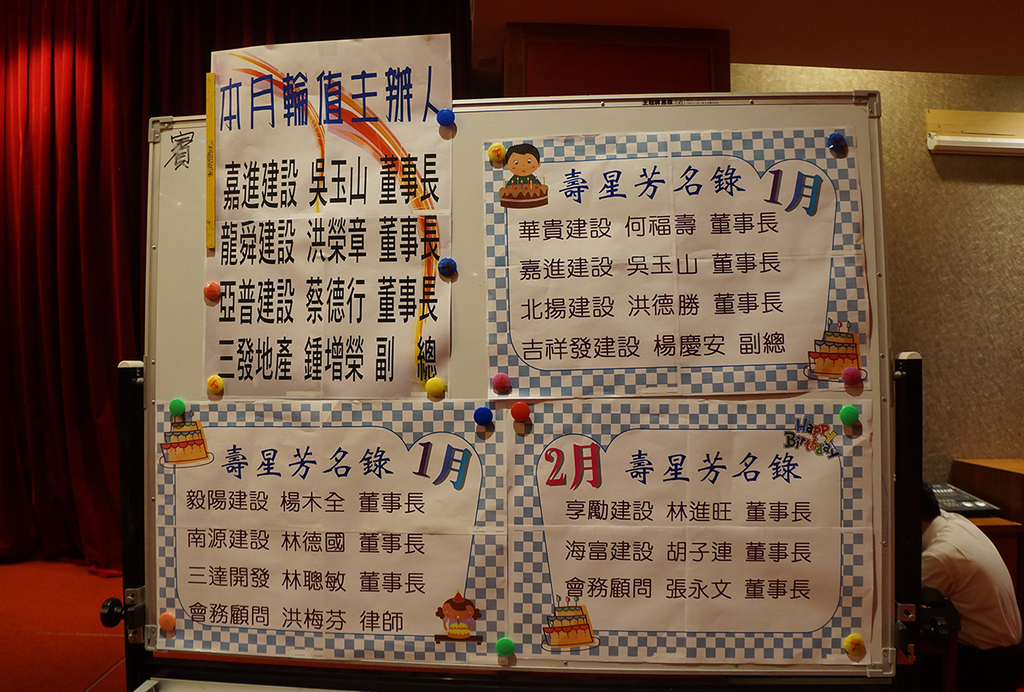 賓
本月輪值主辦人
嘉進建設 吳玉山 董事長
龍舜建設 洪榮章 董事長
亞普建設 蔡德行 董事長
三發地產 鍾增榮 副 總
壽星芳名錄 1月
華貴建設 何福壽 董事長
嘉進建設 吳玉山 董事長
北揚建設 洪德勝 董事長
吉祥發建設 楊慶安 副總
壽星芳名錄 1月
毅陽建設 楊木全 董事長
南源建設 林德國 董事長
三達開發 林聰敏 董事長
會務顧問 洪梅芬 律師
2月 壽星芳名錄
Happy
Birthday
享勵建設 林進旺 董事長
海富建設 胡子連 董事長
會務顧問 張永文 董事長